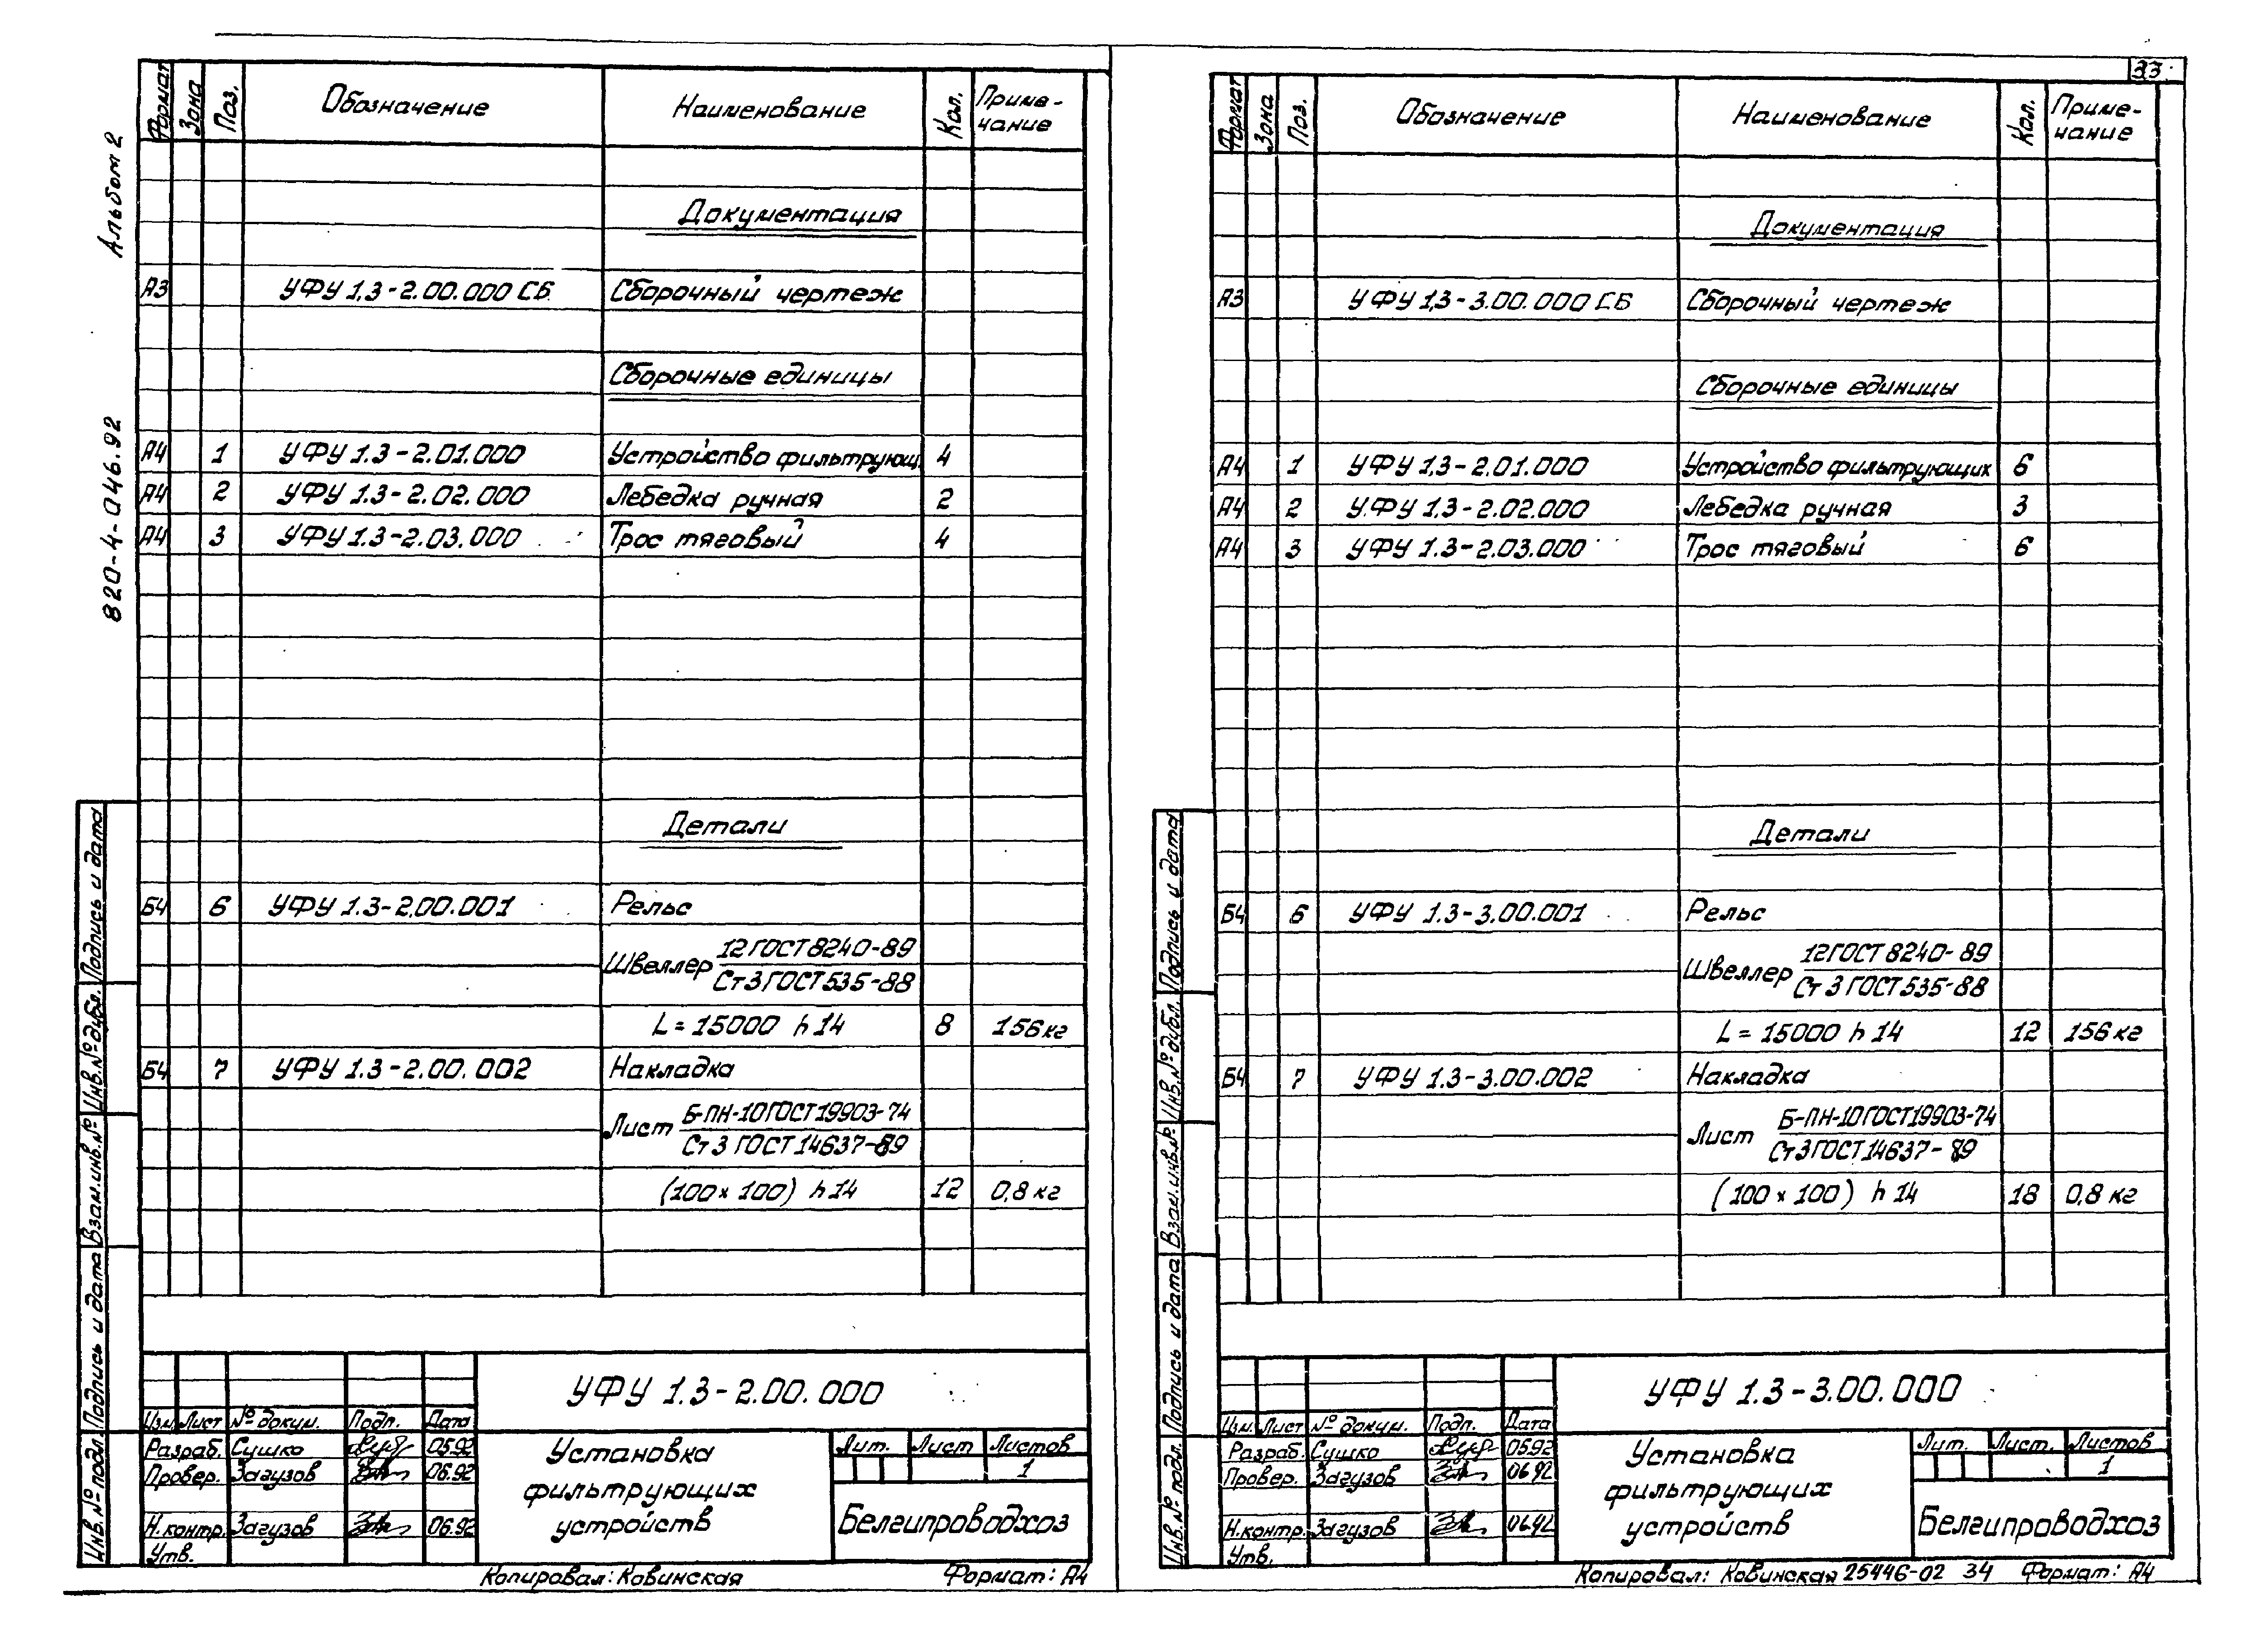 Альбом 2
820-4-046.92
Формат Зона Поз. Обозначение Наименование Кол. Приме-
чание
Документация
А3 УФУ 1.3-2.00.000 СБ Сборочный чертеж
Сборочные единицы
А4 1 УФУ 1.3-2.01.000 Устройство фильтрующ. 4
А4 2 УФУ 1.3-2.02.000 Лебедка ручная 2
А4 3 УФУ 1.3-2.03.000 Трос тяговый 4
Детали
Б4 6 УФУ 1.3-2.00.001 Рельс
Швеллер 12 ГОСТ 8240-89
Ст 3 ГОСТ 535-88
L = 15000 h14 8 156 кг
Б4 7 УФУ 1.3-2.00.002 Накладка
Лист Б-ПН-10 ГОСТ 19903-74
Ст 3 ГОСТ 14637-89
(100 x 100) h14 12 0,8 кг
Подпись и дата
Инв. № дубл.
Взам. инв. №
Подпись и дата
Инв. № подл.
УФУ 1.3-2.00.000
Изм. Лист № докум. Подп. Дата
Разраб. Сушко 05.92
Провер. Загузов 06.92
Н.контр. Загузов 06.92
Утв.
Установка
фильтрующих
устройств
Лит. Лист Листов
1
Белгипроводхоз
Копировал: Ковинская Формат: А4
33
Формат Зона Поз. Обозначение Наименование Кол. Приме-
чание
Документация
А3 УФУ 1,3-3.00.000 СБ Сборочный чертеж
Сборочные единицы
А4 1 УФУ 1.3-2.01.000 Устройство фильтрующих 6
А4 2 УФУ 1.3-2.02.000 Лебедка ручная 3
А4 3 УФУ 1.3-2.03.000 Трос тяговый 6
Детали
Б4 6 УФУ 1.3-3.00.001 Рельс
Швеллер 12 ГОСТ 8240-89
Ст 3 ГОСТ 535-88
L = 15000 h14 12 156 кг
Б4 7 УФУ 1.3-3.00.002 Накладка
Лист Б-ПН-10 ГОСТ 19903-74
Ст 3 ГОСТ 14637-89
(100 x 100) h14 18 0,8 кг
Подпись и дата
Инв. № дубл.
Взам. инв. №
Подпись и дата
Инв. № подл.
УФУ 1.3-3.00.000
Изм. Лист № докум. Подп. Дата
Разраб. Сушко 05.92
Провер. Загузов 06.92
Н.контр. Загузов 06.92
Утв.
Установка
фильтрующих
устройств
Лит. Лист. Листов
1
Белгипроводхоз
Копировал: Ковинская 25446-02 34 Формат: А4